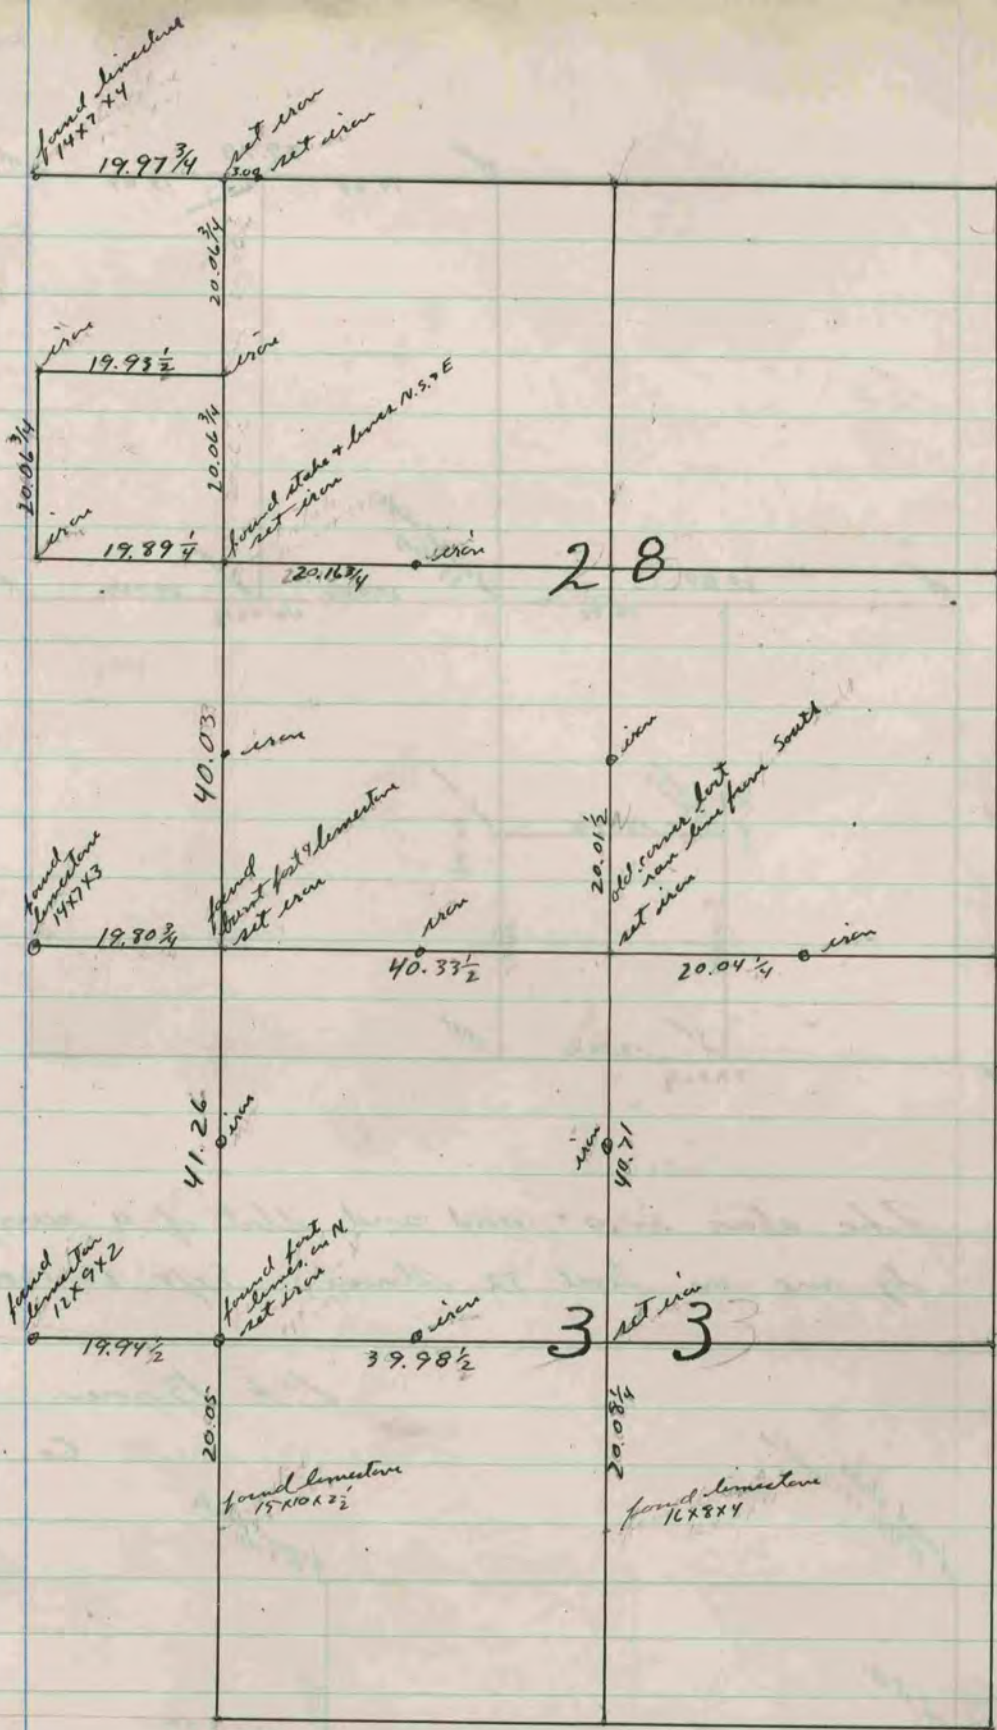 found limestone
14x7x4
19.97 3/4
set iron
3.08 set iron
20.06 3/4
iron
19.93 1/2
iron
20.06 3/4
20.06 3/4
found stake & lines N.S. & E
set iron
iron
19.89 1/4
20.16 3/4
iron
28
40.03
iron
iron
20.01 1/2
old corner lost
ran line from South
set iron
found
limestone
14x7x3
19.80 3/4
found
burnt post & limestone
set iron
iron
40.33 1/2
20.04 1/4
iron
41.26
iron
iron
40.71
found
limeston
12x9x2
19.94 1/2
found post
limes. on N.
set iron
iron
39.98 1/2
33
set iron
20.05
20.08 1/4
found limestone
15x10x2 1/2
found limestone
16x8x4